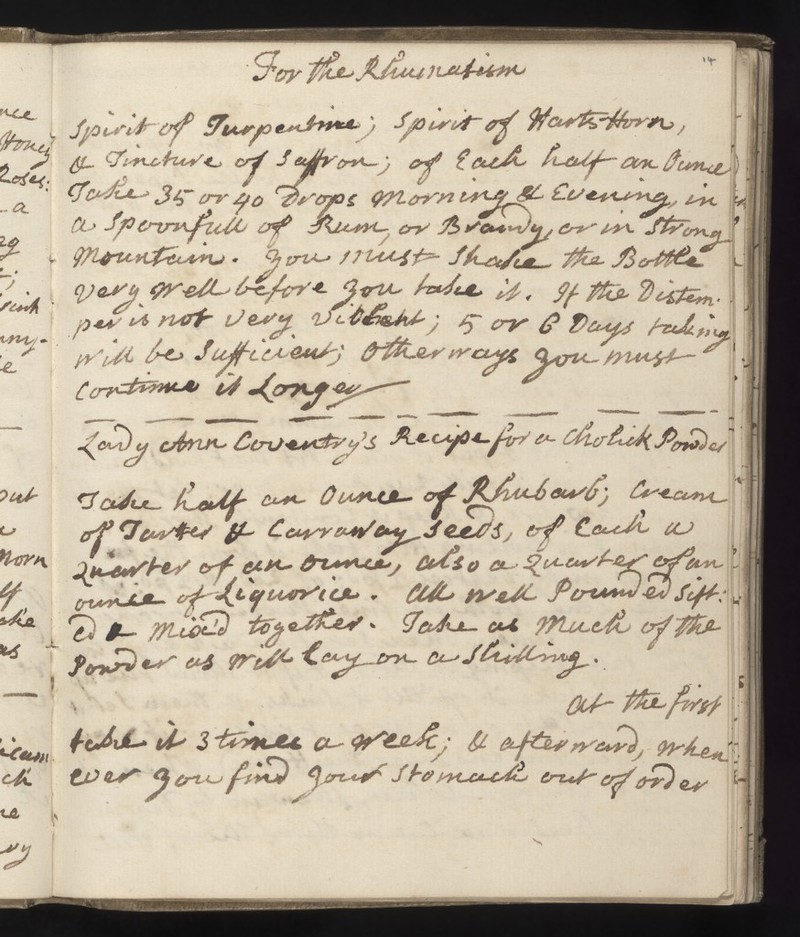 nce
Honey
Roses:
a
eg
t;
rink
nny-
le
out
a
Morn
lf
ake
as
icam
ck
he
vy
14
For the Rhumatism
Spirit of Turpentine; Spirit of Harts Horn,
& Tincture of Saffron; of Each half an Ounce
Take 35 or 40 Drops Morning & Evening, in
a Spoonfull of Rum, or Brandy, or in Strong
Mountain. you must Shake the Bottle
very well before you take it. If the Distem-
per is not very violent; 5 or 6 Days taking
will be Sufficient; Otherways you must
Continue it Longer
Lady Ann Coventry's Recipe for a Cholick Powder
Take half an Ounce of Rhubarb; Cream
of Tarter & Carraway Seeds, of Each a
Quarter of an Ounce, also a Quarter of an
ounce of Liquorice. All well Pounded Sift:
ed & Mix'd together. Take as Much of the
Powder as Will Lay on a Shilling.
At the first
take it 3 times a Week; & afterward, When
ever you find your Stomach out of order